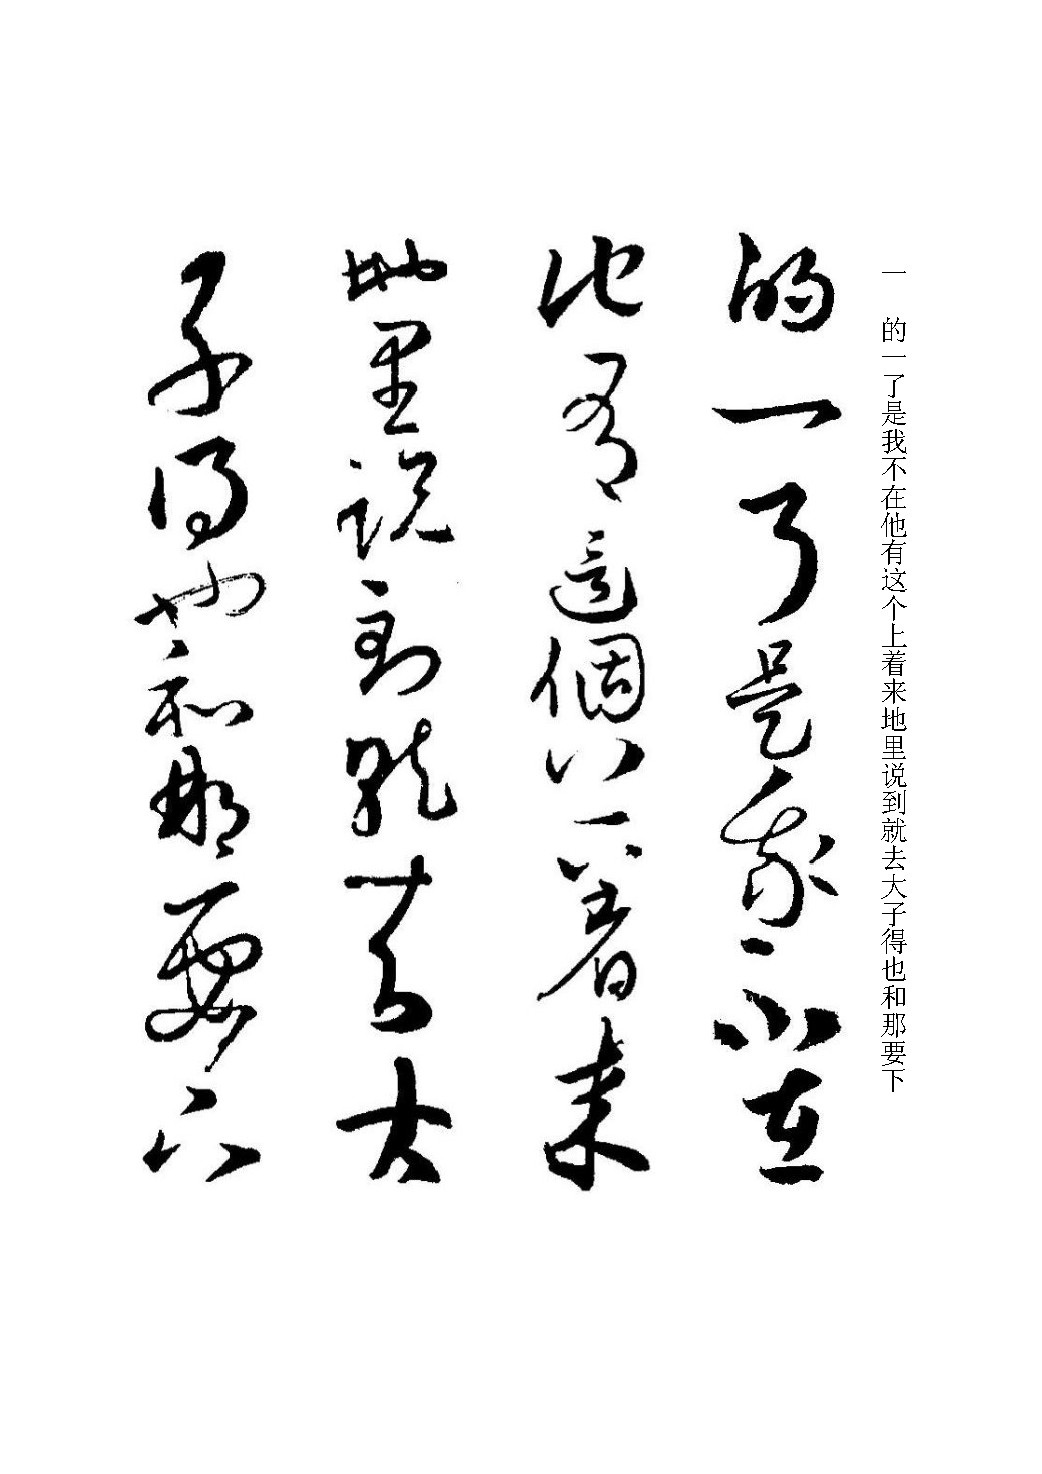 一　的一了是我不在他有这个上着来地里说到就去大子得也和那要下
的一了是我不在
他有這個上着来
地里说到就去大
子得也和那要下